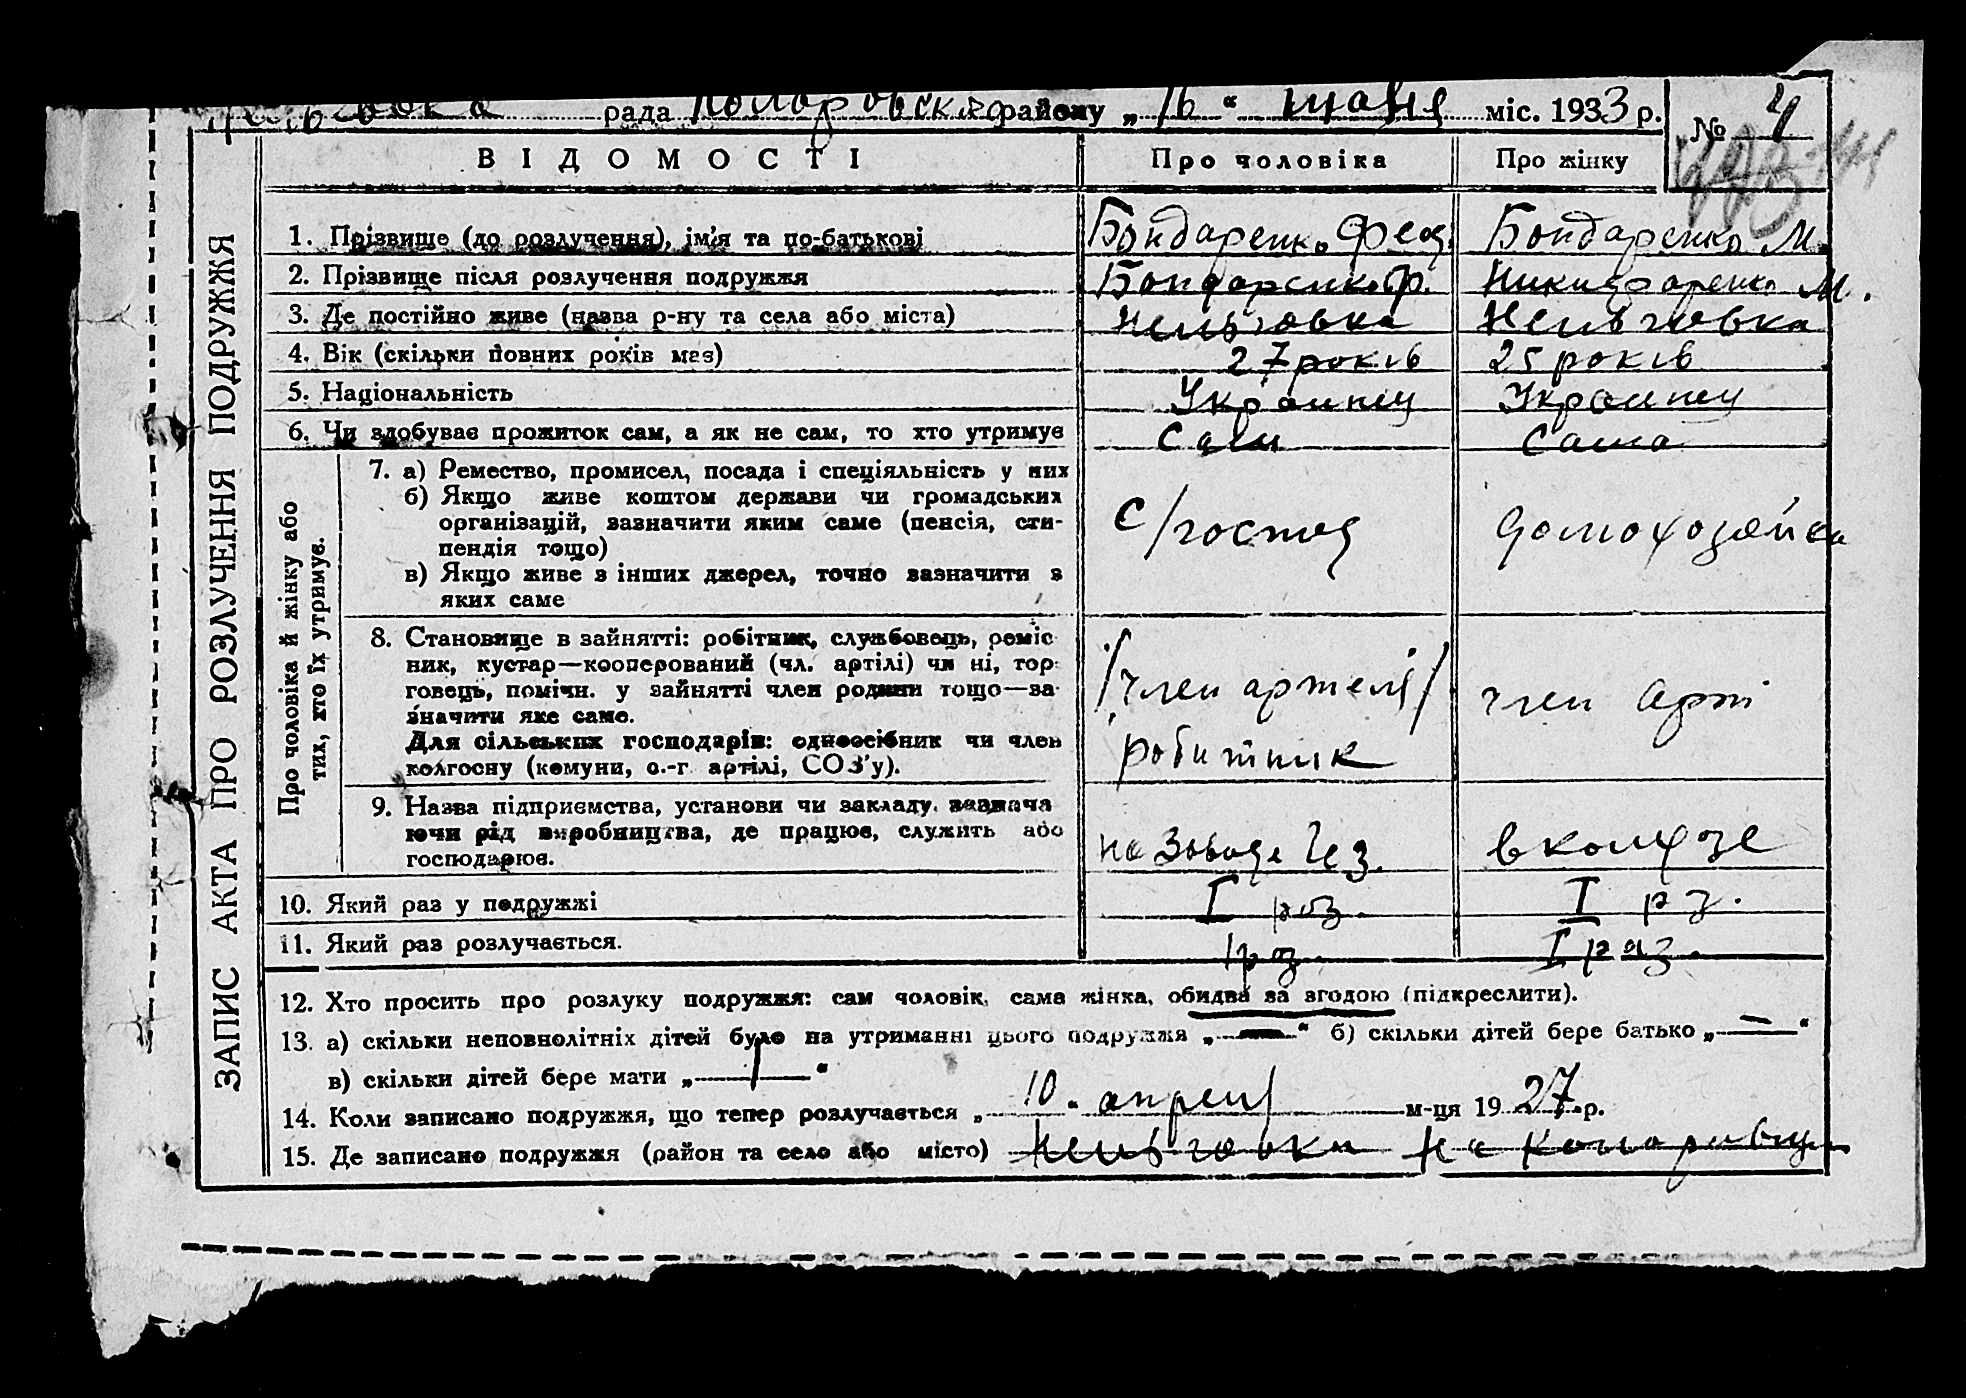 рада районy „ 16 “ мая міс. 1933 р. № 4
ВІДОМОСТІ Про чоловіка Про жінку
ЗАПИС АКТА ПРО РОЗЛУЧЕННЯ ПОДРУЖЖЯ
1. Прізвище (до розлучення), ім'я та по-батькові Бондаренко Фед. Бондаренко М.
2. Прізвище після розлучення подружжя Бондаренко Ф. М.
3. Де постійно живе (назва р-ну та села або міста)
4. Вік (скільки повних років має) 27 років 25 років
5. Національність Украинец Украинец
6. Чи здобуває прожиток сам, а як не сам, то хто утримує Сам Сама
Про чоловіка й жінку або
тих, хто їх утримує.
7. а) Ремество, промисел, посада і спеціяльність у них
б) Якщо живе коштом держави чи громадських
організацій, зазначити яким саме (пенсія, сти-
пендія тощо)
в) Якщо живе з інших джерел, точно зазначити з
яких саме
с/господ домохозяйка
8. Становище в зайнятті: робітник, службовець, реміс
ник, кустар—кооперований (чл. артілі) чи ні, тор-
говець, помічн. у зайнятті член родини тощо—за-
значити яке саме.
Для сільських господарів: одноосібник чи член
колгоспу (комуни, с.-г. артілі, СОЗ'у).
/член артелі/ член арті
робитник
9. Назва підприємства, установи чи закладу, зазнача
ючи рід виробництва, де працює, служить або
господарює.
на Заводе в колхозе
10. Який раз у подружжі I раз. I рз.
11. Який раз розлучається. 1 рз. I раз.
12. Хто просить про розлуку подружжя: сам чоловік, сама жінка, обидва за згодою (підкреслити).
13. а) скільки неповнолітніх дітей було на утриманні цього подружжя „ — “ б) скільки дітей бере батько „ — “
в) скільки дітей бере мати „ 1 “
14. Коли записано подружжя, що тепер розлучається „ 10 “ апреля м-ця 1927 р.
15. Де записано подружжя (район та село або місто)